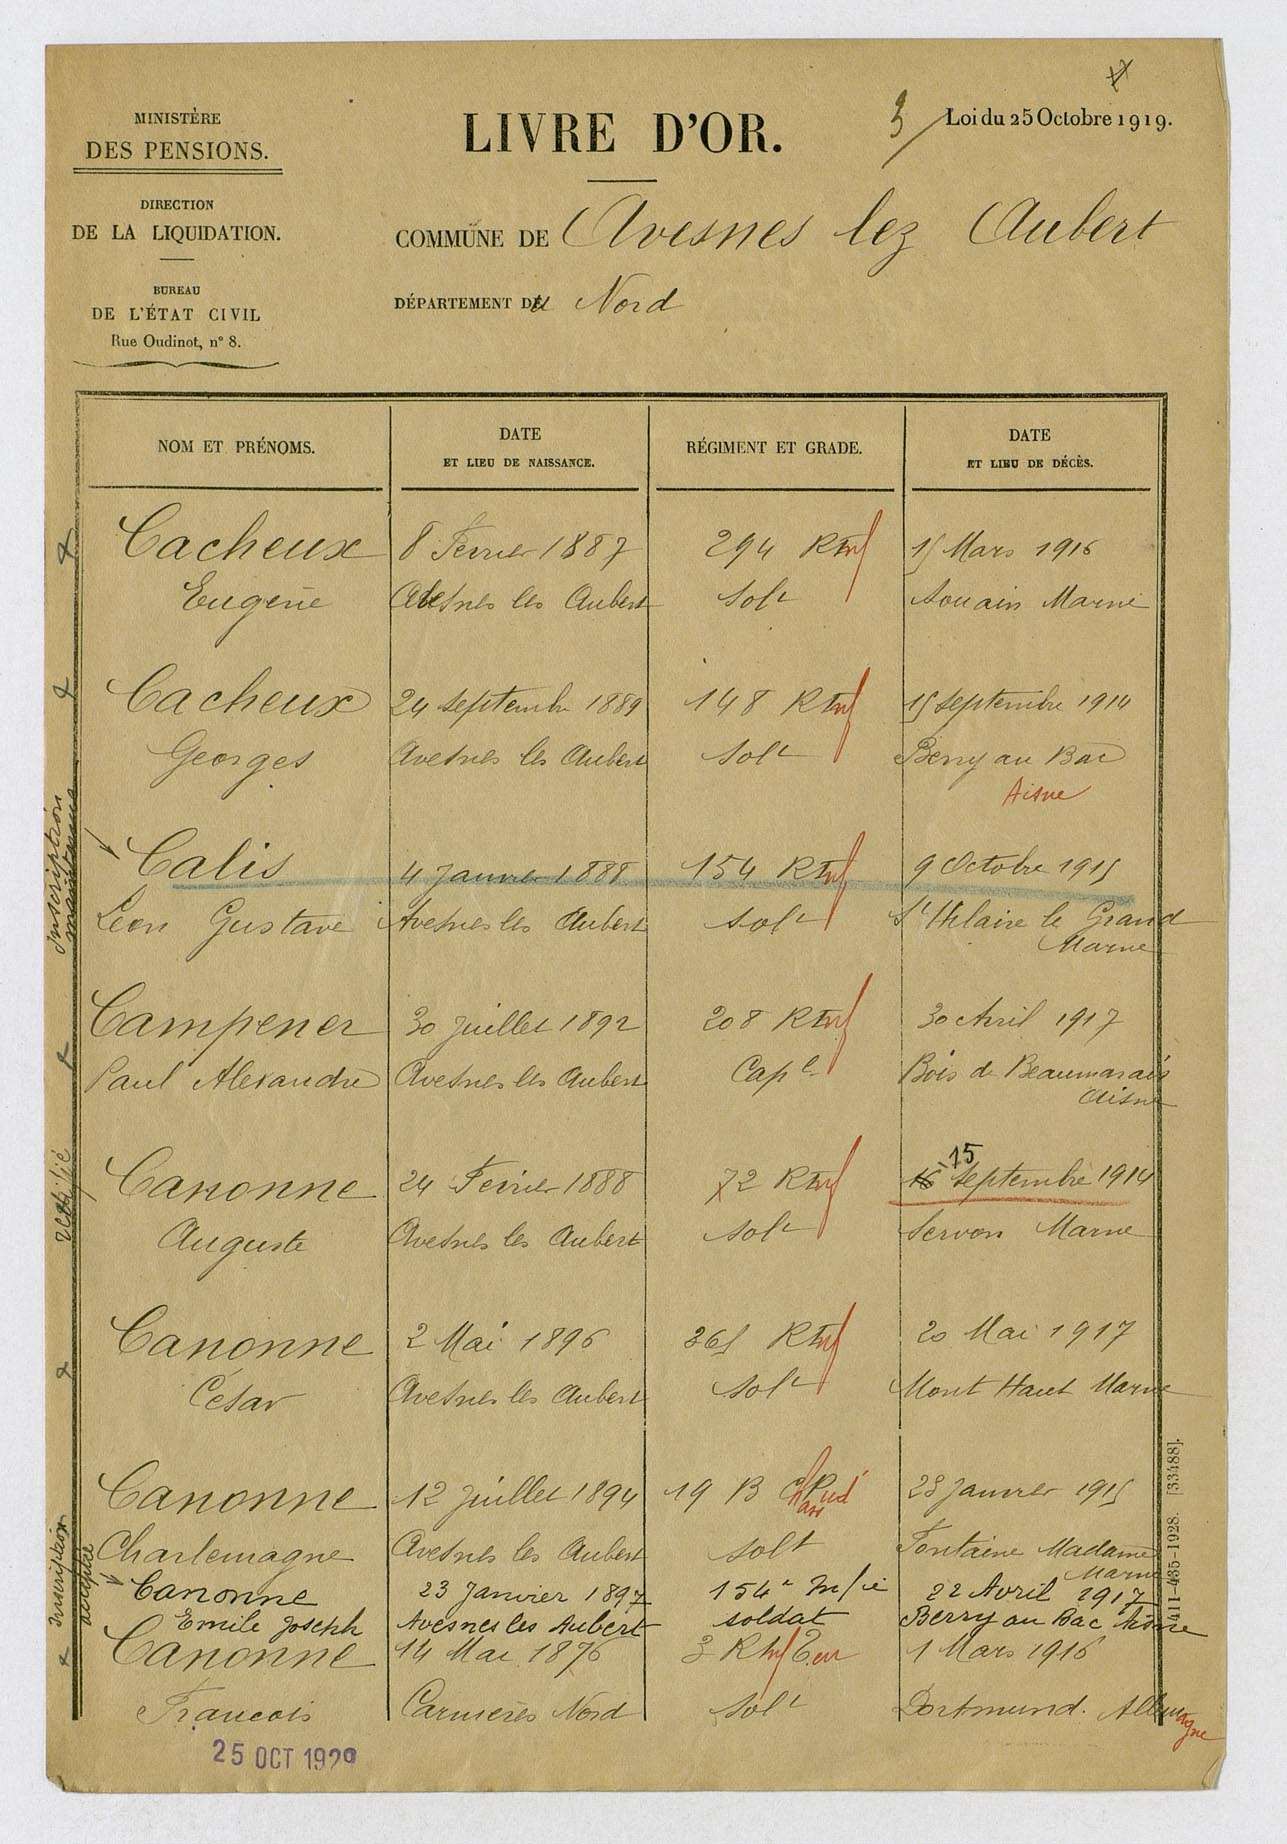 MINISTÈRE
DES PENSIONS.
DIRECTION
DE LA LIQUIDATION.
BUREAU
DE L'ÉTAT CIVIL
Rue Oudinot, n° 8.
LIVRE D'OR.
3
Loi du 25 Octobre 1919.
COMMUNE DE Avesnes lez Aubert
DÉPARTEMENT DU Nord
NOM ET PRÉNOMS.
DATE
ET LIEU DE NAISSANCE.
RÉGIMENT ET GRADE.
DATE
ET LIEU DE DÉCÈS.
Cacheux 8 Fevrier 1887 294 R Inf 15 Mars 1916
Eugène Avesnes les Aubert Solt Souain Marne
Cacheux 24 septembre 1889 148 R Inf 15 septembre 1914
Georges Avesnes les Aubert Solt Berry au Bac
Aisne
Calis 4 Janvier 1888 154 R Inf 9 Octobre 1915
Leon Gustave Avesnes les Aubert solt St Hilaire le Grand
Marne
Campener 30 Juillet 1892 208 R Inf 30 Avril 1917
Paul Alexandre Avesnes les Aubert Capl Bois de Beaumarais
Aisne
15
Canonne 24 Fevrier 1888 72 R Inf 16 septembre 1914
Auguste Avesnes les Aubert solt Servon Marne
Canonne 2 Mai 1896 365 R Inf 20 Mai 1917
César Avesnes les Aubert solt Mont Haut Marne
Canonne 12 Juillet 1894 19 B Chass 28 Janvier 1915
Charlemagne Avesnes les Aubert solt Fontaine Madame
Marne
Canonne 23 Janvier 1897 154e In/ie 22 Avril 1917
Emile Joseph Avesnes les Aubert soldat Berry au Bac Aisne
Canonne 14 Mai 1876 3 R Inf Ter 1 Mars 1916
Francois Carnieres Nord Solt Dortmund. Allemagne
25 OCT 1929
inscription
maintenue
rectifié
Inscription
acceptée
1411-435-1928. [33488].